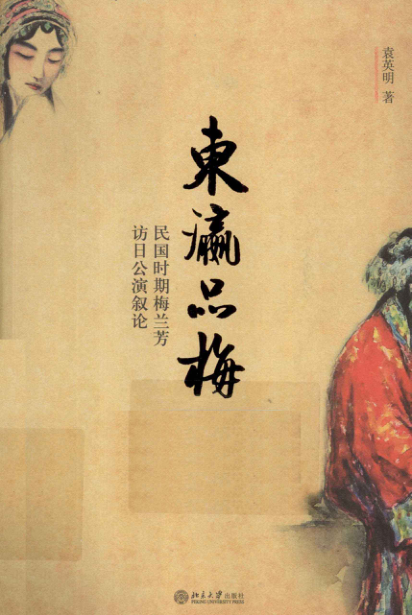 袁英明 著
東瀛品梅
民国时期梅兰芳
访日公演叙论
北京大学出版社
PEKING UNIVERSITY PRESS